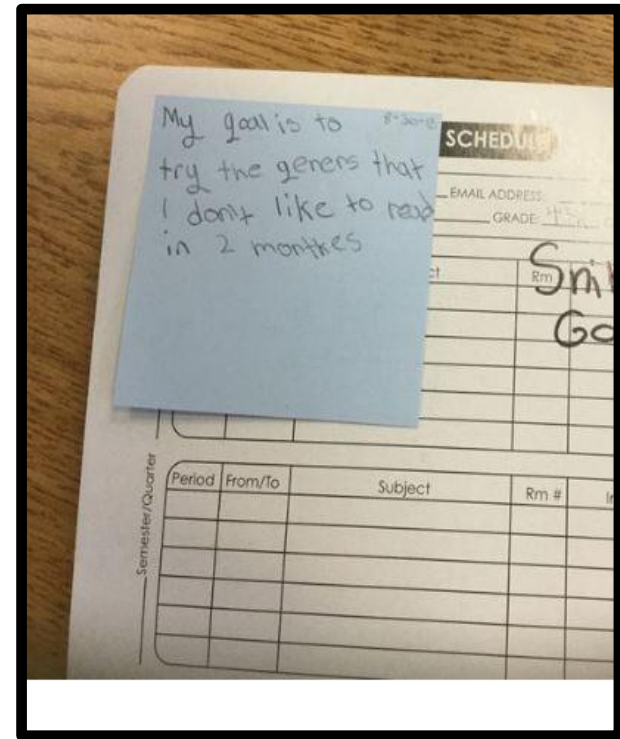 My goal is to
try the geners that
I don't like to read
in 2 monthes
SCHEDULE
EMAIL ADDRESS:
GRADE:
Rm
Go
Semester/Quarter
Period From/To Subject Rm #